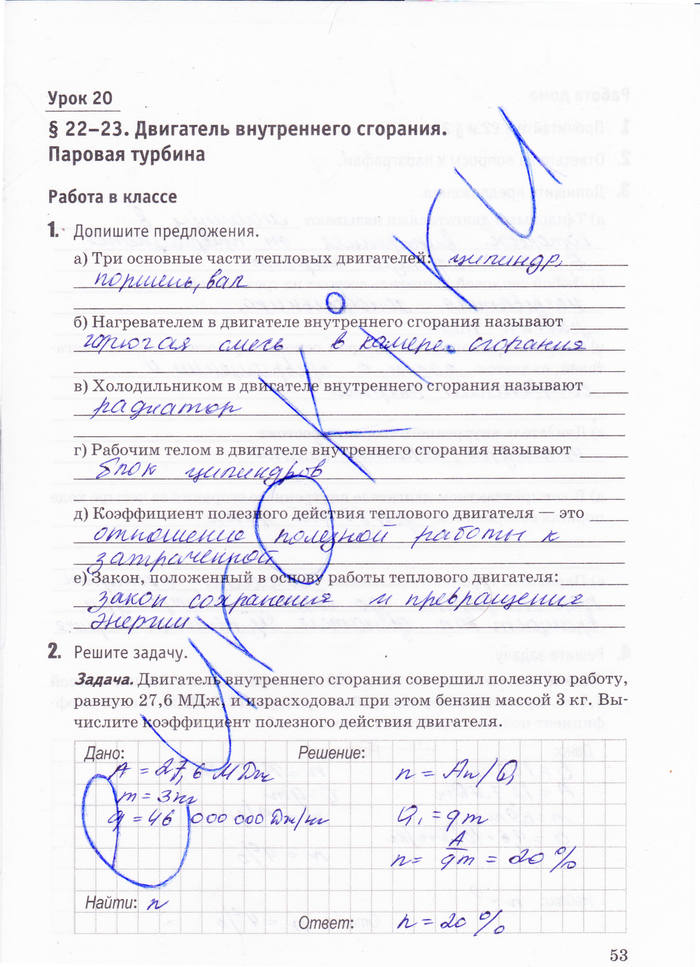 Урок 20
§ 22–23. Двигатель внутреннего сгорания.
Паровая турбина
Работа в классе
1. Допишите предложения.
а) Три основные части тепловых двигателей: цилиндр,
поршень, вал
б) Нагревателем в двигателе внутреннего сгорания называют
горючая смесь в камере сгорания
в) Холодильником в двигателе внутреннего сгорания называют
радиатор
г) Рабочим телом в двигателе внутреннего сгорания называют
блок цилиндров
д) Коэффициент полезного действия теплового двигателя — это
отношение полезной работы к
затраченной
е) Закон, положенный в основу работы теплового двигателя:
закон сохранения и превращения
энергии
2. Решите задачу.
Задача. Двигатель внутреннего сгорания совершил полезную работу,
равную 27,6 МДж, и израсходовал при этом бензин массой 3 кг. Вы-
числите коэффициент полезного действия двигателя.
Дано: Решение:
A = 27,6 МДж n = Aп/Q1
m = 3 кг
q = 46 000 000 Дж/кг Q1 = qm
n = A/qm = 20 %
Найти: n
Ответ: n = 20 %
53